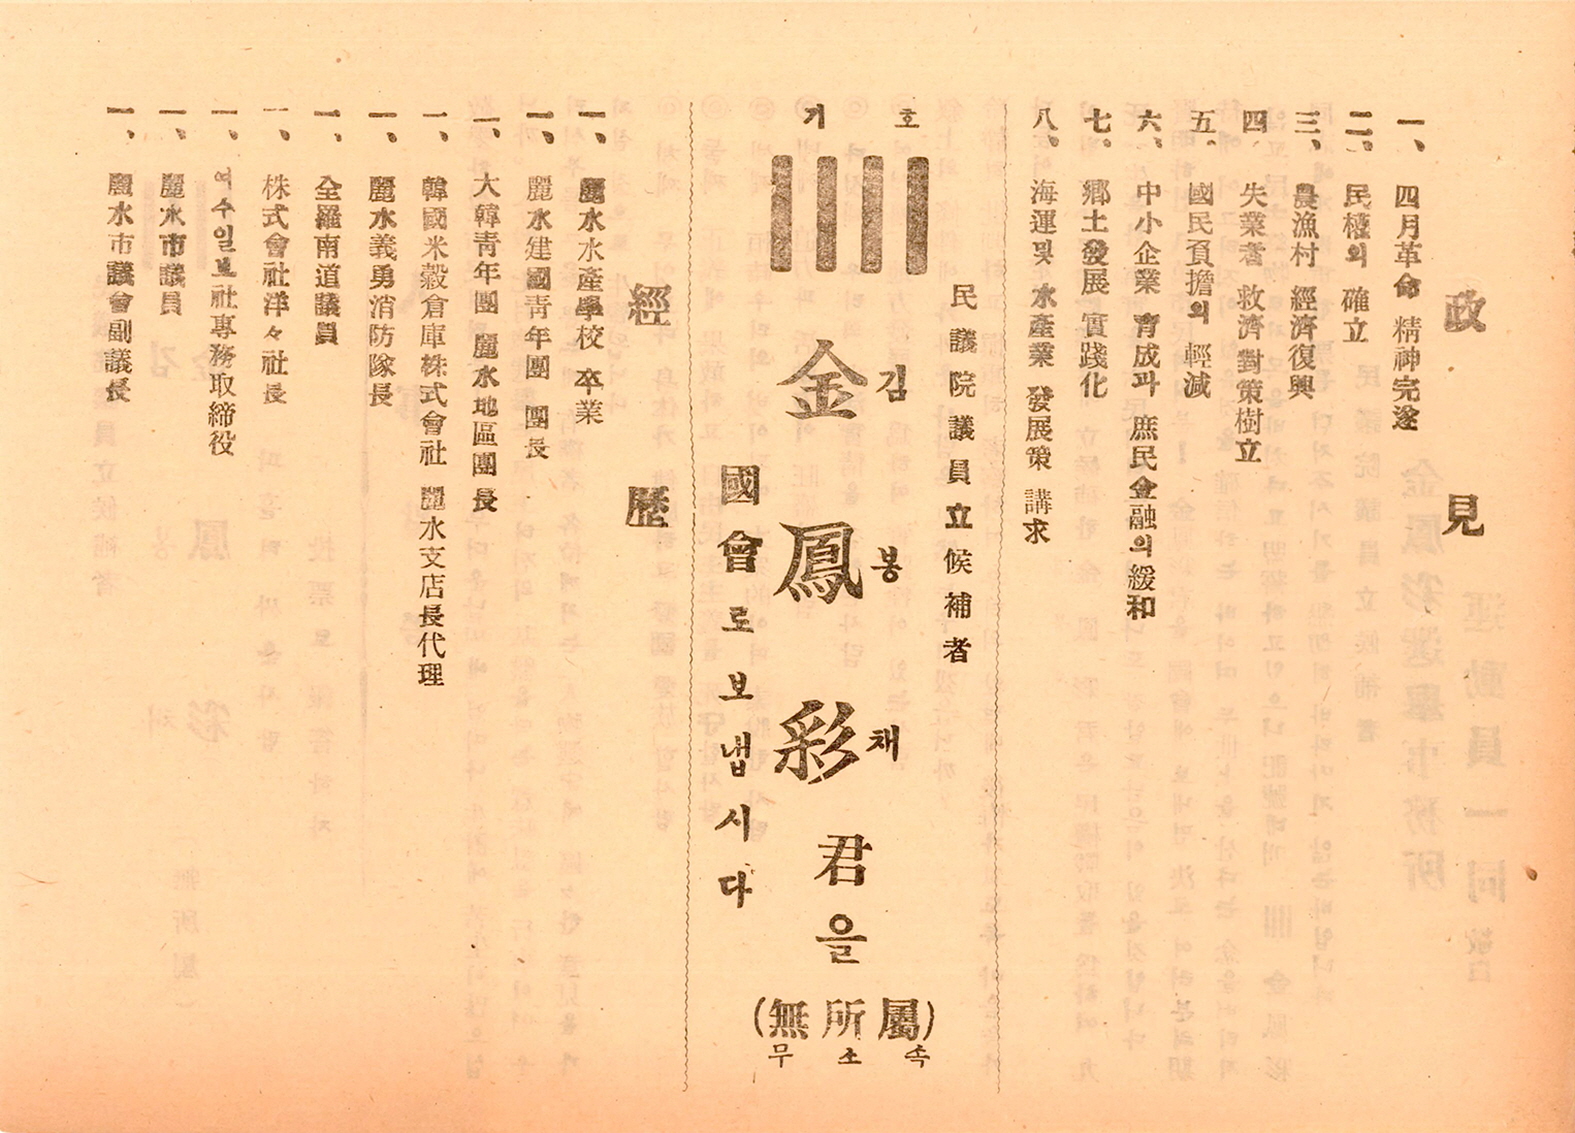 政見
一、四月革命 精神完遂
二、民権의 確立
三、農漁村 經濟復興
四、失業者 救濟對策樹立
五、國民負擔의 輕減
六、中小企業 育成과 庶民金融의 緩和
七、鄕土發展 實踐化
八、海運및 水產業 發展策 講求
民議院議員立候補者
기호
||||
김봉채
金鳳彩君을
(無所屬)
무소속
國會로보냅시다
經歷
一、麗水水產學校 卒業
一、麗水建國靑年團 團長
一、大韓靑年團 麗水地區團長
一、韓國米穀倉庫株式會社 麗水支店長代理
一、麗水義勇消防隊長
一、全羅南道議員
一、株式會社洋々社長
一、여수일보社專務取締役
一、麗水市議員
一、麗水市議會副議長